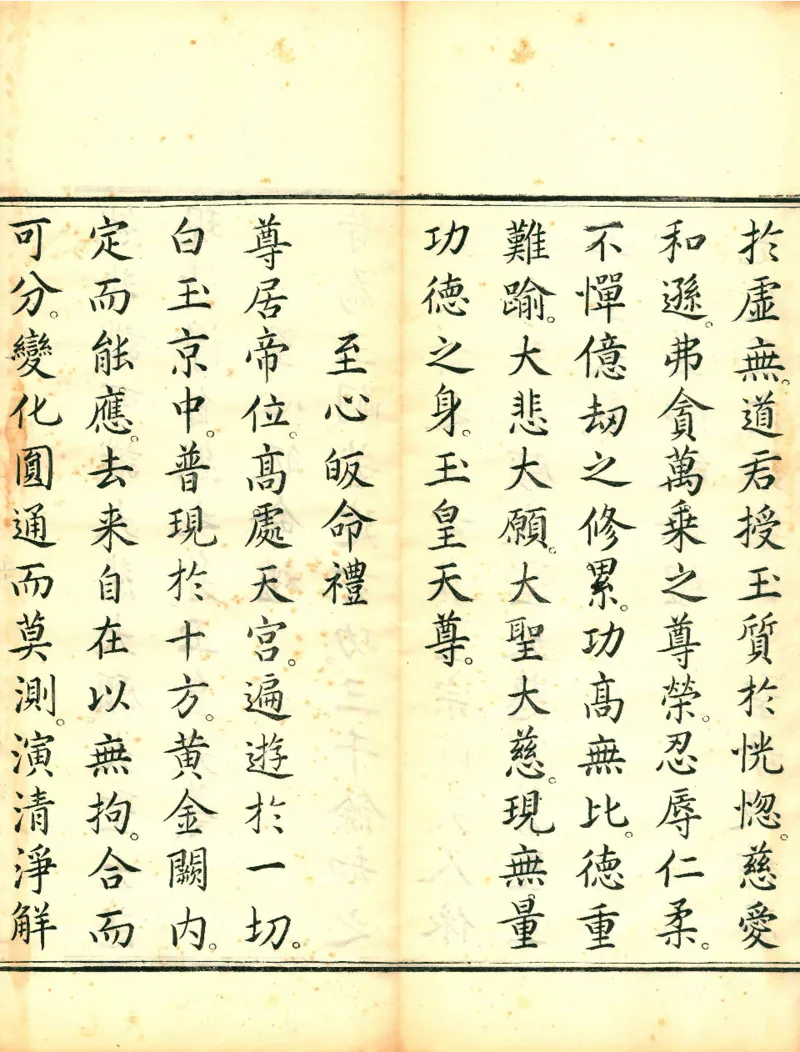 於虛無。道君授玉質於恍惚。慈愛
和遜。弗貪萬乗之尊榮。忍辱仁柔。
不憚億劫之修累。功髙無比。德重
難踰。大悲大願。大聖大慈。現無量
功德之身。玉皇天尊。
至心皈命禮
尊居帝位。髙處天宮。遍遊於一切。
白玉京中。普現於十方。黄金闕内。
定而能應。去来自在以無拘。合而
可分。變化圓通而莫測。演清淨解